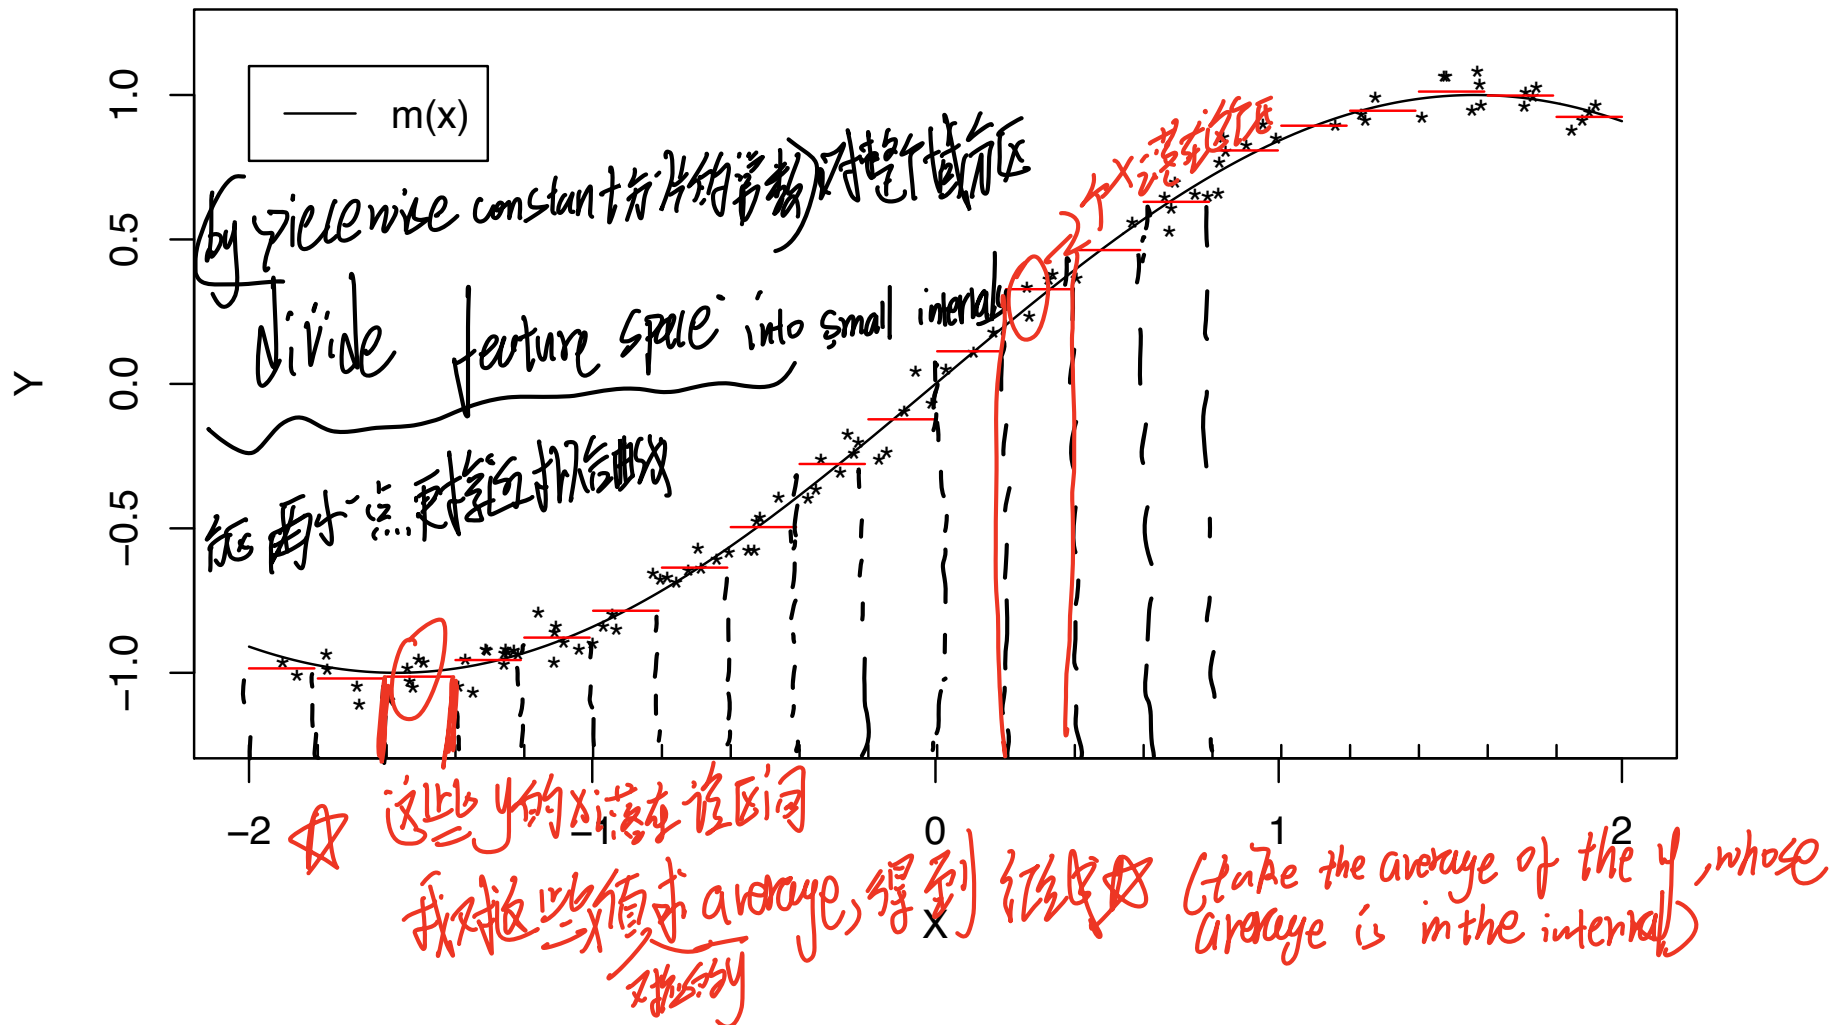 1.0
0.5
0.0
−0.5
−1.0
Y
m(x)
(by piecewise constant 分片的常数)对整个域分区
divide feature space into small intervals
个xi落在该区
点
拟合曲线
−2
−1
0
1
2
X
☆ 这些y的xi落在该区间
我对这些x值求average,得到红线☆
对应的y
(take the average of the y, whose
average is in the interval)